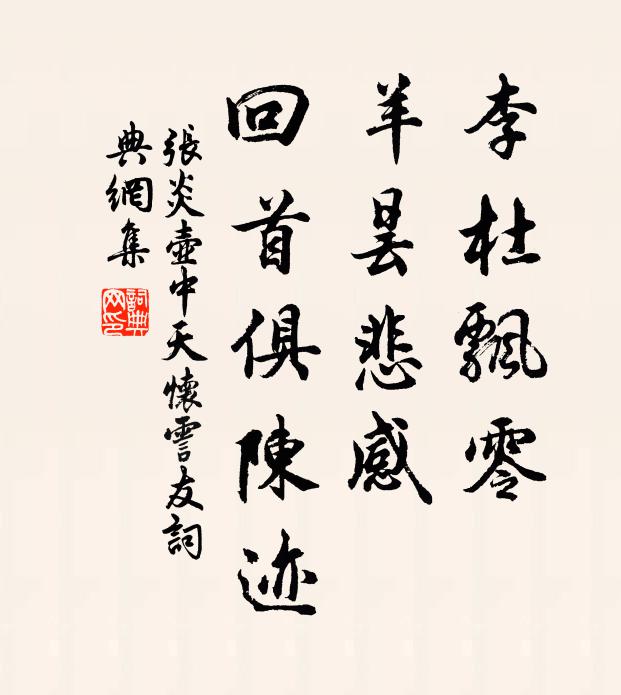 李杜飄零
羊昙悲感
回首俱陳迹
張炎壺中天懷雪友詞
典網集
詞典網印